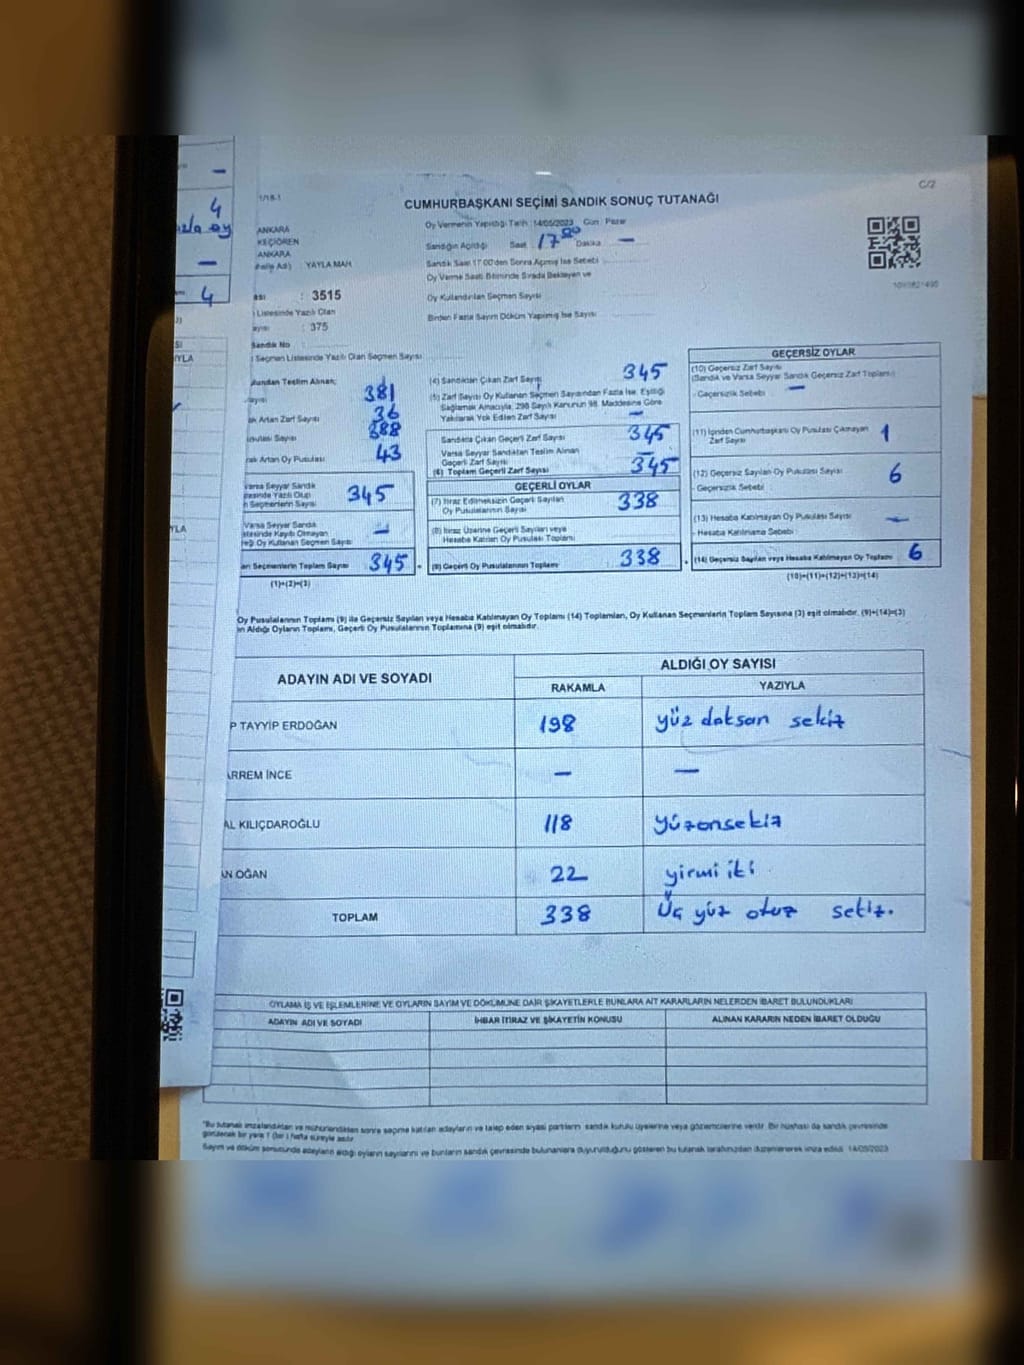 4
zla oy
4
C/2
1/18-1
CUMHURBAŞKANI SEÇİMİ SANDIK SONUÇ TUTANAĞI
Oy Vermenin Yapıldığı Tarih : 14/05/2023 Gün : Pazar
ANKARA
KEÇİÖREN
ANKARA
YAYLA MAH
Sandığın Açıldığı Saat : 17 00 Dakika : —
Sandık Saat 17:00'den Sonra Açılmış İse Sebebi :
Oy Verme Saati Bitiminde Sırada Bekleyen ve
Oy Kullandırılan Seçmen Sayısı
Birden Fazla Sayım Döküm Yapılmış İse Sayısı :
: 3515
Listesinde Yazılı Olan
: 375
Sandık No
Seçmen Listesinde Yazılı Olan Seçmen Sayısı
Teslim Alınan;
381
Artan Zarf Sayısı 36
388
Artan Oy Pusulası 43
Varsa Seyyar Sandık
Yazılı Olup
Seçmenlerin Sayısı 345
Varsa Seyyar Sandık
Kayıtlı Olmayan
Oy Kullanan Seçmen Sayısı —
Seçmenlerin Toplam Sayısı 345
(1)+(2)=(3)
(4) Sandıktan Çıkan Zarf Sayısı 345
(5) Zarf Sayısı Oy Kullanan Seçmen Sayısından Fazla İse, Eşitliği
Sağlamak Amacıyla, 298 Sayılı Kanunun 98. Maddesine Göre
Yakılarak Yok Edilen Zarf Sayısı —
Sandıkta Çıkan Geçerli Zarf Sayısı 345
Varsa Seyyar Sandıktan Teslim Alınan
Geçerli Zarf Sayısı —
(6) Toplam Geçerli Zarf Sayısı 345
GEÇERLİ OYLAR
(7) İtiraz Edilmeksizin Geçerli Sayılan
Oy Pusulalarının Sayısı 338
(8) İtiraz Üzerine Geçerli Sayılan veya
Hesaba Katılan Oy Pusulası Toplamı
(9) Geçerli Oy Pusulalarının Toplamı 338
GEÇERSİZ OYLAR
(10) Geçersiz Zarf Sayısı
(Sandık ve Varsa Seyyar Sandık Geçersiz Zarf Toplamı)
- Geçersizlik Sebebi : —
(11) İçinden Cumhurbaşkanı Oy Pusulası Çıkmayan
Zarf Sayısı 1
(12) Geçersiz Sayılan Oy Pusulası Sayısı 6
- Geçersizlik Sebebi :
(13) Hesaba Katılmayan Oy Pusulası Sayısı —
- Hesaba Katılmama Sebebi :
(14) Geçersiz Sayılan veya Hesaba Katılmayan Oy Toplamı 6
(10)+(11)+(12)+(13)=(14)
Oy Pusulalarının Toplamı (9) ile Geçersiz Sayılan veya Hesaba Katılmayan Oy Toplamı (14) Toplamları, Oy Kullanan Seçmenlerin Toplam Sayısına (3) eşit olmalıdır. (9)+(14)=(3)
Aldığı Oyların Toplamı, Geçerli Oy Pusulalarının Toplamına (9) eşit olmalıdır.
ADAYIN ADI VE SOYADI ALDIĞI OY SAYISI
RAKAMLA YAZIYLA
P TAYYİP ERDOĞAN 198 yüz doksan sekiz
RREM İNCE — —
AL KILIÇDAROĞLU 118 yüzonsekiz
AN OĞAN 22 yirmi iki
TOPLAM 338 Üç yüz otuz sekiz.
OYLAMA İŞ VE İŞLEMLERİNE VE OYLARIN SAYIM VE DÖKÜMÜNE DAİR ŞİKAYETLERLE BUNLARA AİT KARARLARIN NELERDEN İBARET BULUNDUKLARI
ADAYIN ADI VE SOYADI İHBAR İTİRAZ VE ŞİKAYETİN KONUSU ALINAN KARARIN NEDEN İBARET OLDUĞU
*Bu tutanak imzalandıktan ve mühürlendikten sonra seçime katılan adayların ve talep eden siyasi partilerin sandık kurulu üyelerine veya gözlemcilerine verilir. Bir nüshası da sandık çevresinde
görülecek bir yere 1 (bir) hafta süreyle asılır.
Sayım ve döküm sonucunda adayların aldığı oyların sayılarını ve bunların sandık çevresinde bulunanlara duyurulduğunu gösteren bu tutanak tarafımızdan düzenlenerek imza edildi. 14/05/2023